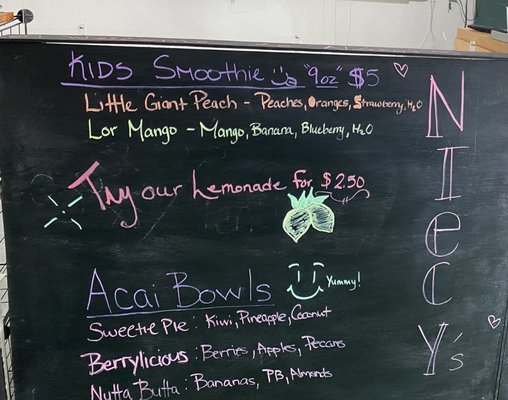 KIDS Smoothie "9oz" $5
Little Giant Peach - Peaches, Oranges, Strawberry, H2O
Lor Mango - Mango, Banana, Blueberry, H2O
Try our Lemonade for $2.50
Acai Bowls
Yummy!
Sweetie Pie: Kiwi, Pineapple, Coconut
Berrylicious: Berries, Apples, Pecans
Nutta Butta: Bananas, PB, Almonds
NIecy's